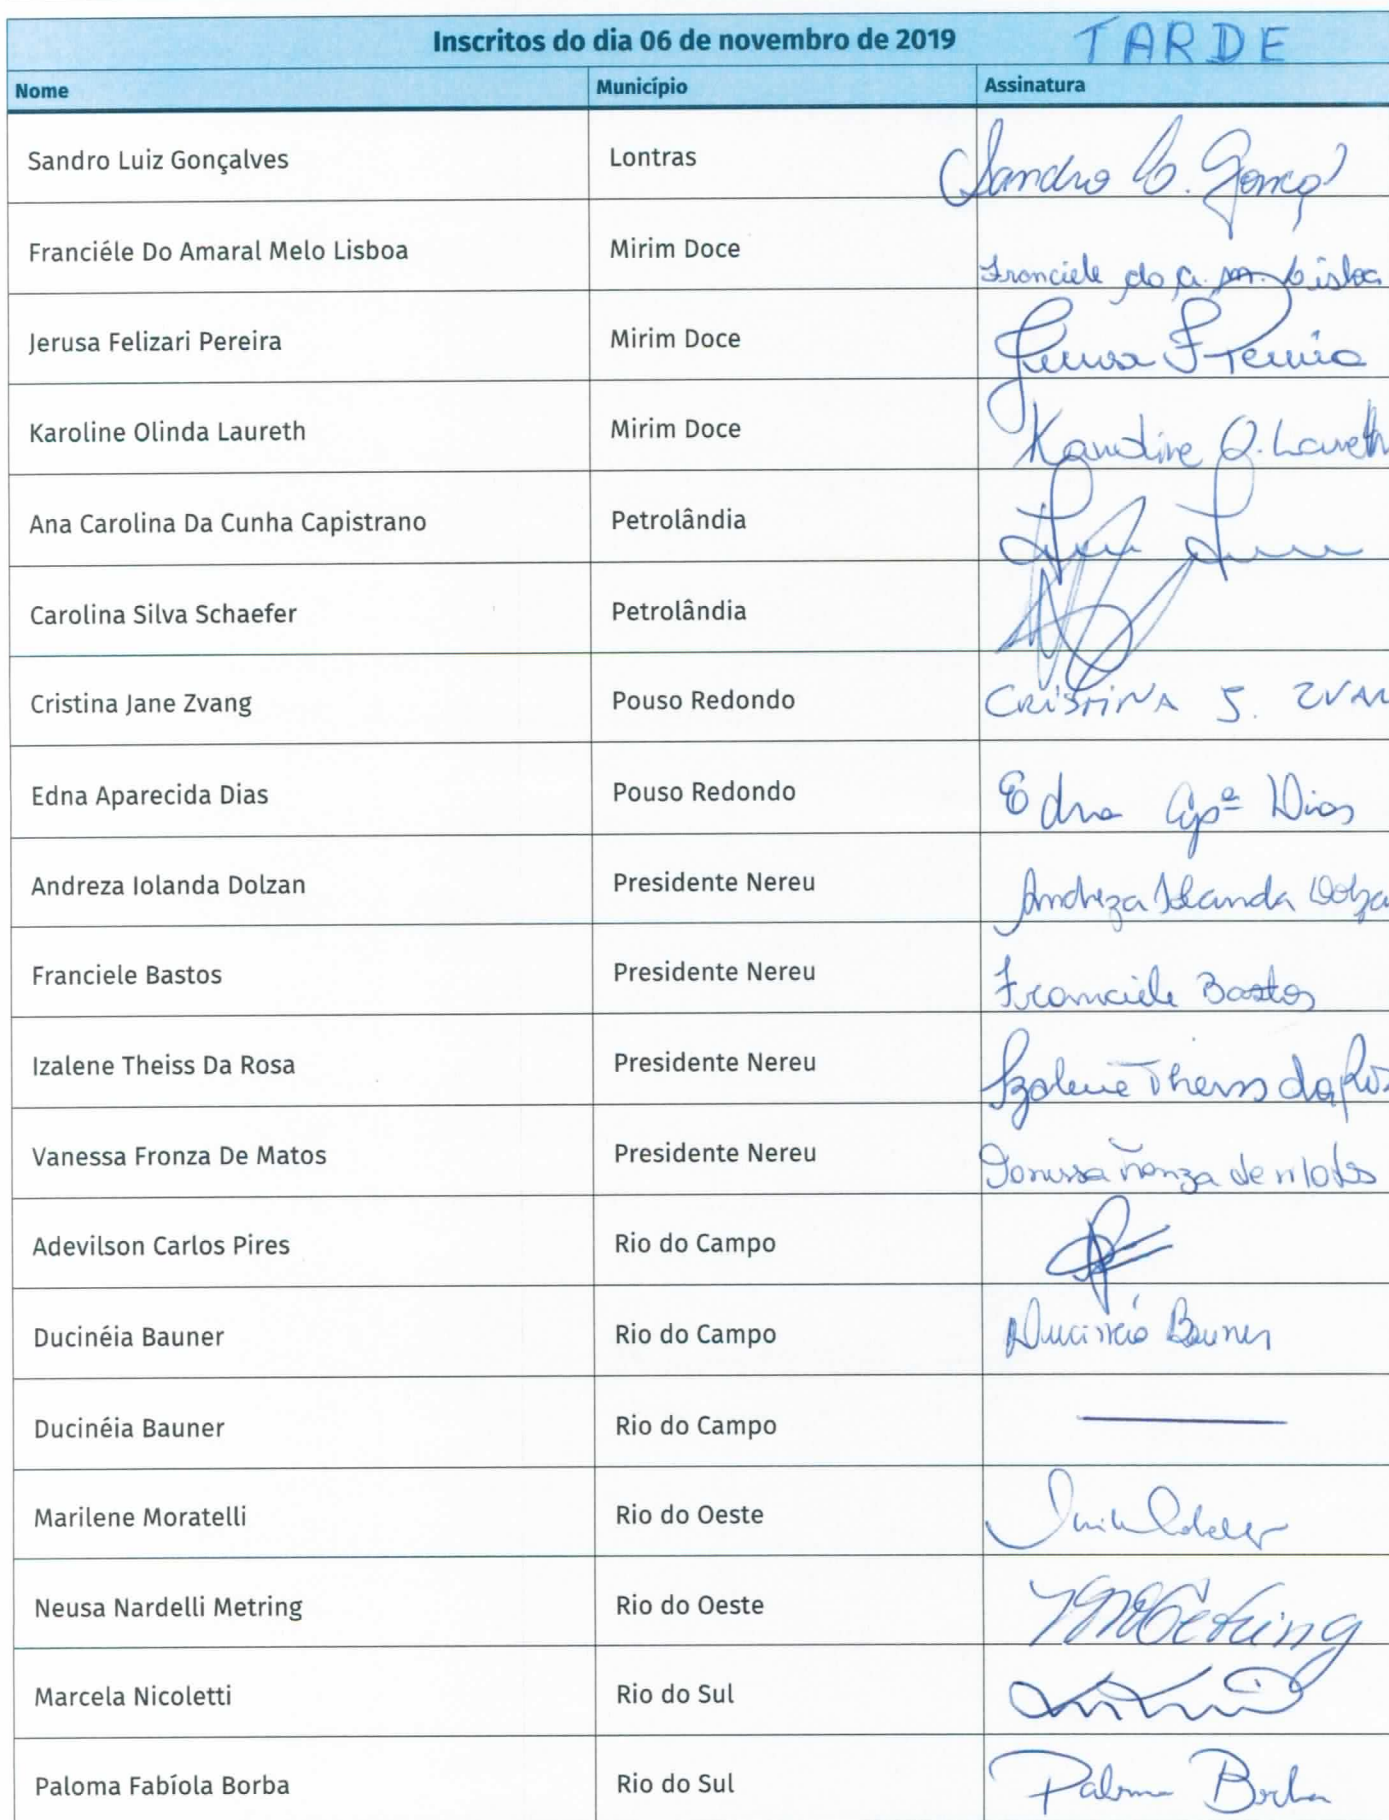 Inscritos do dia 06 de novembro de 2019 TARDE
Nome Município Assinatura
Sandro Luiz Gonçalves Lontras Sandro L. Gonçal
Franciéle Do Amaral Melo Lisboa Mirim Doce Franciele do A. M. Lisboa
Jerusa Felizari Pereira Mirim Doce Jerusa F Pereira
Karoline Olinda Laureth Mirim Doce Karoline O. Laureth
Ana Carolina Da Cunha Capistrano Petrolândia
Carolina Silva Schaefer Petrolândia
Cristina Jane Zvang Pouso Redondo CRISTINA J. ZVAN
Edna Aparecida Dias Pouso Redondo Edna Apª Dias
Andreza Iolanda Dolzan Presidente Nereu Andreza Iolanda Dolza
Franciele Bastos Presidente Nereu Franciele Bastos
Izalene Theiss Da Rosa Presidente Nereu Izalene Theiss da Ros
Vanessa Fronza De Matos Presidente Nereu Vanessa Fronza de Matos
Adevilson Carlos Pires Rio do Campo
Ducinéia Bauner Rio do Campo Ducinéia Bauner
Ducinéia Bauner Rio do Campo
Marilene Moratelli Rio do Oeste
Neusa Nardelli Metring Rio do Oeste
Marcela Nicoletti Rio do Sul
Paloma Fabíola Borba Rio do Sul Paloma Borba